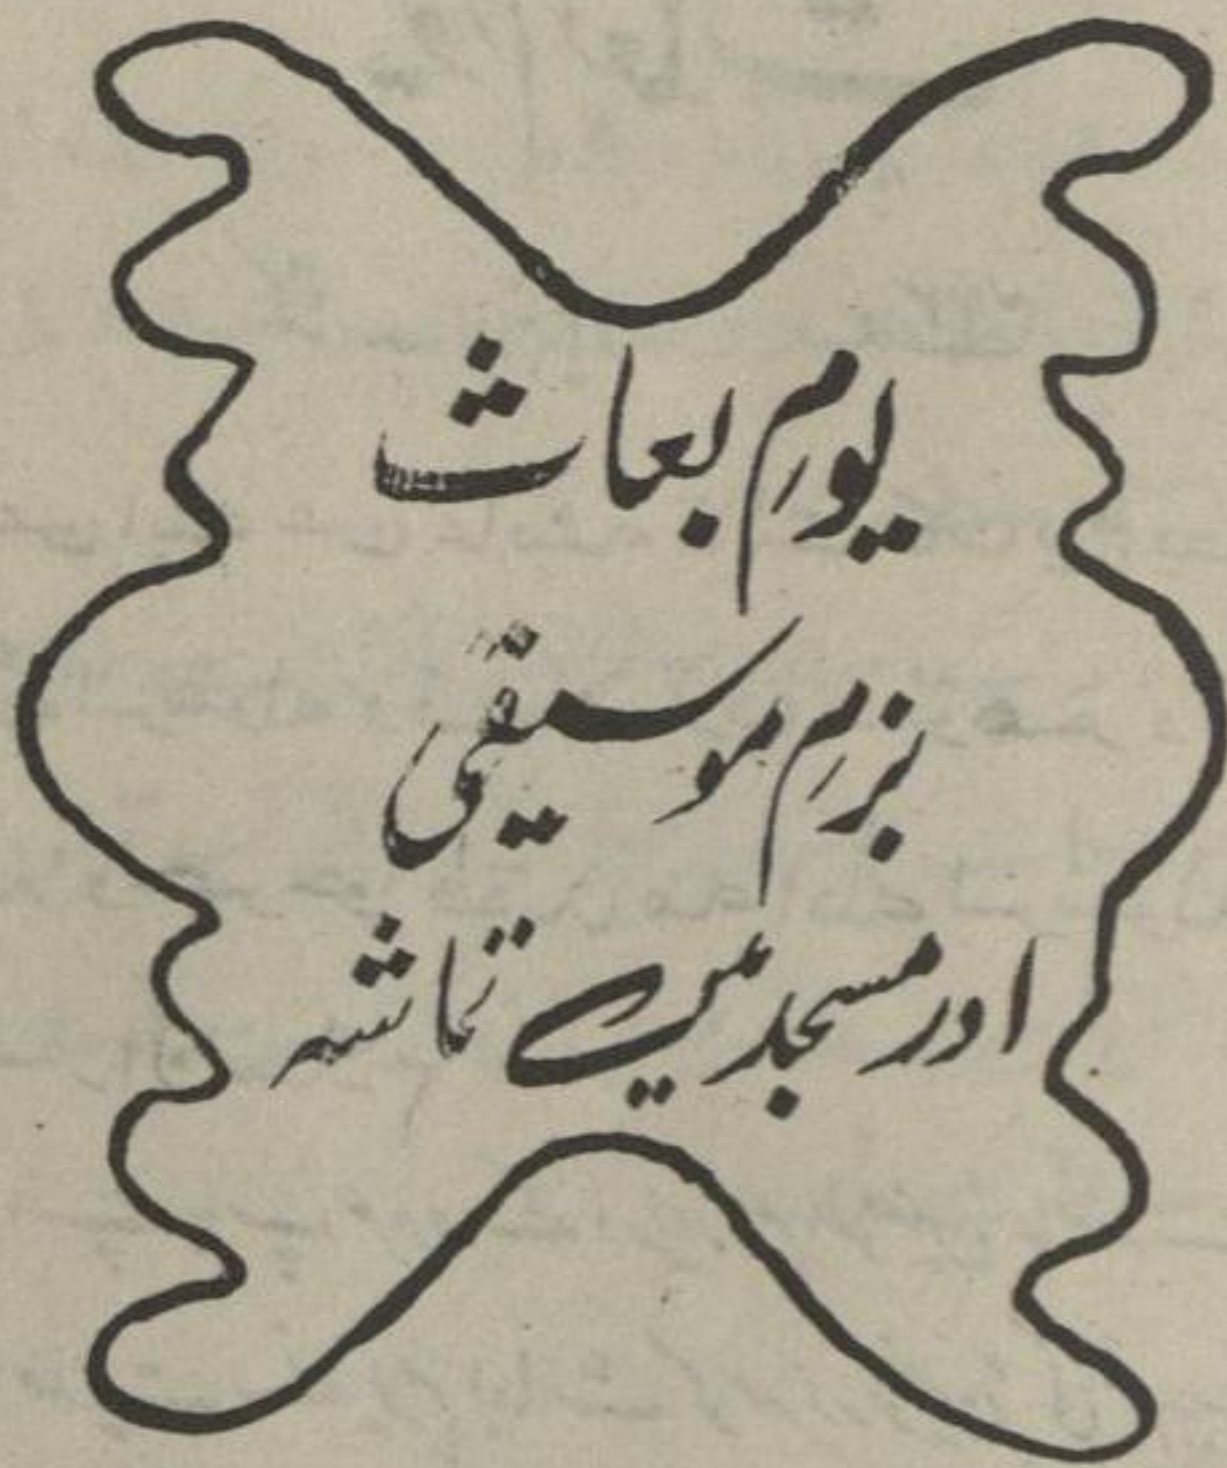 یومِ بعاث
بزمِ موسیقی
اور مسجد میں تماشہ